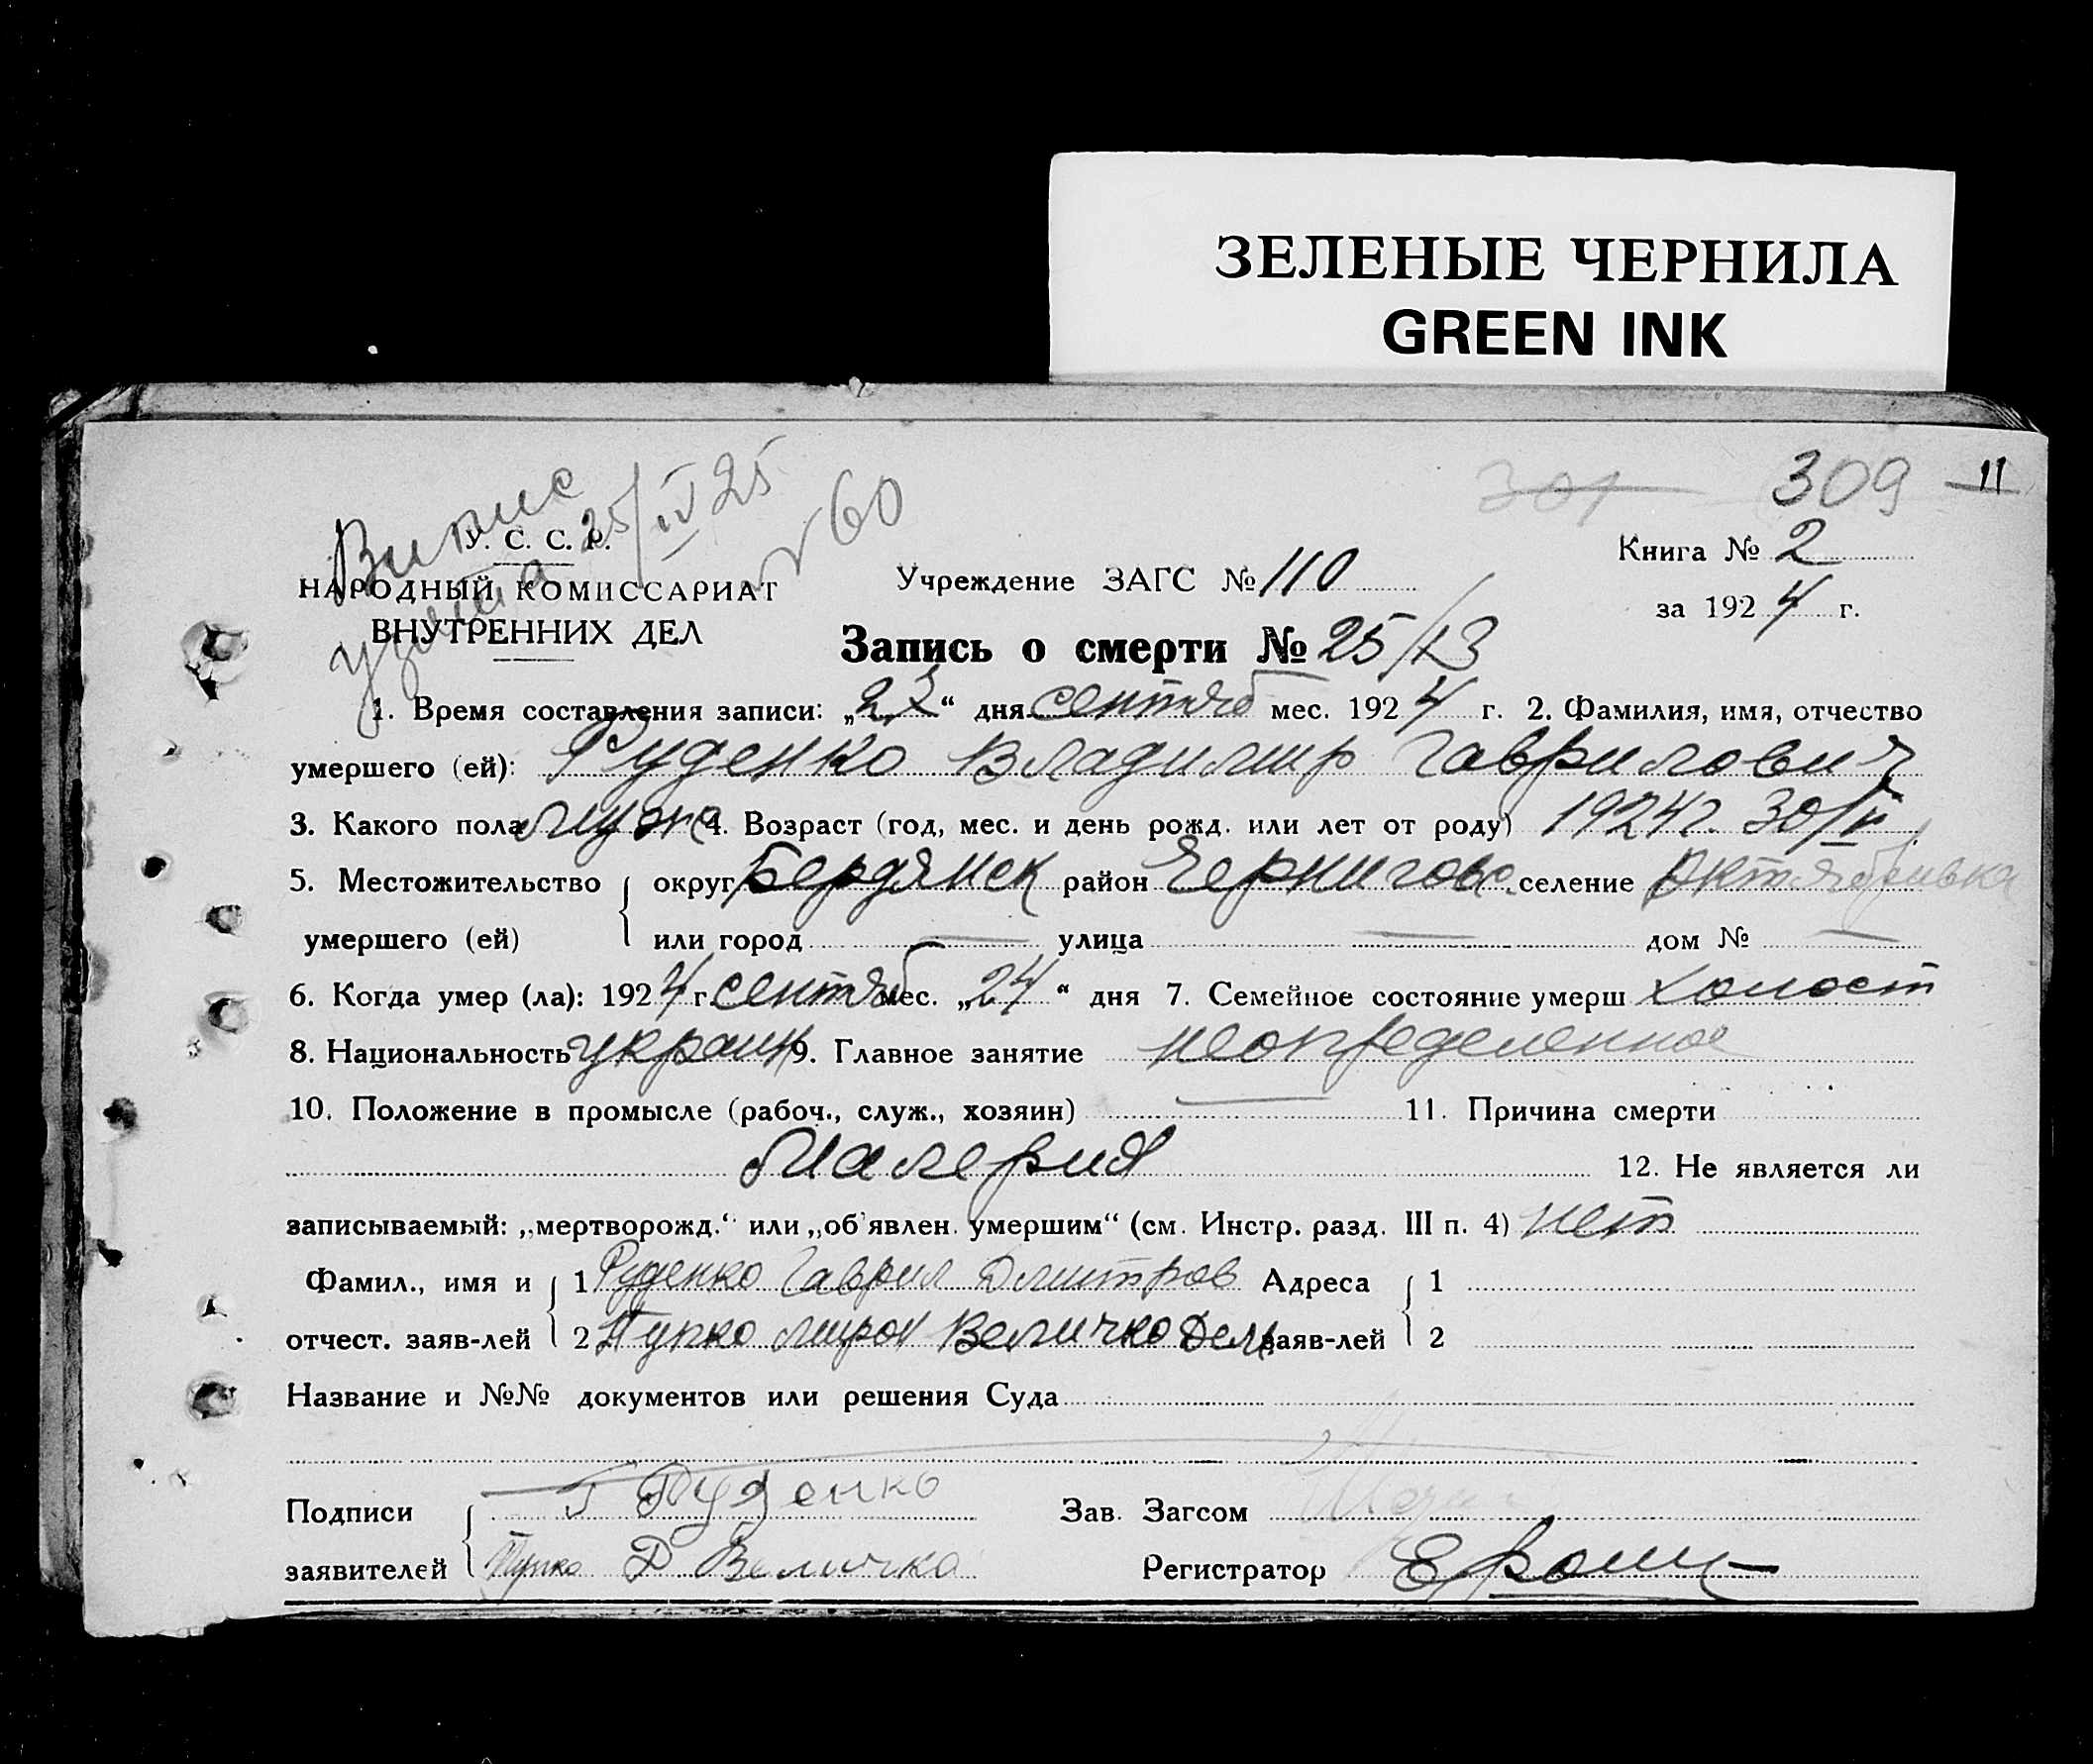 ЗЕЛЕНЫЕ ЧЕРНИЛА
GREEN INK
309 11
Випис 25/IV 25
№ 60
У. С. С. Р.
НАРОДНЫЙ КОМИССАРИАТ
ВНУТРЕННИХ ДЕЛ
Учреждение ЗАГС № 110
Книга № 2
за 1924 г.
Запись о смерти № 25/13
1. Время составления записи: „ “ дня сентяб мес. 1924 г. 2. Фамилия, имя, отчество
умершего (ей): Руденко Владимир Гаврилович
3. Какого пола мужс 4. Возраст (год, мес. и день рожд. или лет от роду) 1924 г. 30/
5. Местожительство округ Бердянск район Черниговс. селение Октябривка
умершего (ей) или город — улица — дом № —
6. Когда умер (ла): 1924 г. сентяб мес. „24“ дня 7. Семейное состояние умерш холост
8. Национальность украин 9. Главное занятие неопределенное
10. Положение в промысле (рабоч., служ., хозяин) — 11. Причина смерти
Малерия 12. Не является ли
записываемый: „мертворожд.“ или „об'явлен. умершим“ (см. Инстр. разд. III п. 4) нет
Фамил., имя и 1 Руденко Гаврил Дмитров Адреса 1
отчест. заяв-лей 2 Пупко Мирон Величко Дем заяв-лей 2
Название и №№ документов или решения Суда
Подписи Г Руденко Зав. Загсом
заявителей Пупко Д Величко Регистратор Ерош